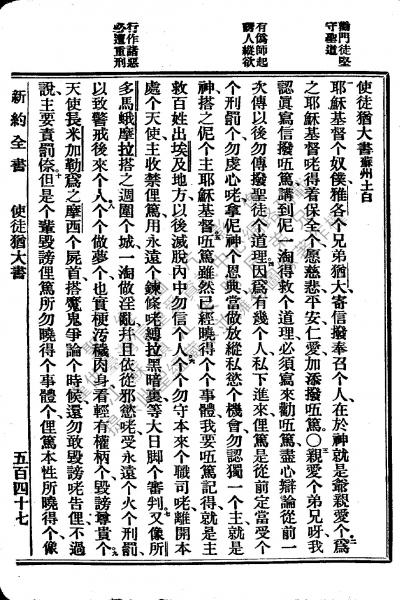 勸門徒堅
守聖道
有僞師起
誘人縱欲
行作諸惡
必遭重刑
使徒猶大書 蘇州土白
耶穌基督个奴僕雅各个兄弟猶大寄信撥奉召个人在於神就是爺親愛个爲
之耶穌基督咾得着保全个愿慈悲平安仁愛加添撥㕶篤〇親愛个弟兄呀我
認眞寫信撥㕶篤講到伲一淘得救个道理必須寫來勸㕶篤盡心辯論從前一
次傳以後勿傳撥聖徒个道理因爲有幾个人私下進來俚篤是從前定當受个
个刑罰个勿虔心咾拿伲神个恩典當做放縱私慾个機會勿認獨一个主就是
神搭之伲个主耶穌基督㕶篤雖然已經曉得个个事體我要㕶篤記得就是主
救百姓出埃及地方以後滅脫內中勿信个人个个勿守本來个職司咾離開本
處个天使主收禁俚篤用永遠个鍊條咾縛拉黑暗裏等大日脚个審判又像所
多馬蛾摩拉搭之週圍个城一淘做淫亂幷且依從邪慾咾受永遠个火个刑罰
以致警戒後來个人个个做夢个也實梗汚穢肉身看輕有權柄个毀謗尊貴个
天使長米加勒爲之摩西个屍首搭魔鬼爭論个時候還勿敢毀謗咾告俚不過
說主要責罰倷但是个个輩毀謗俚篤所勿曉得个事體个俚篤本性所曉得个像
新約全書 使徒猶大書 五百四十七